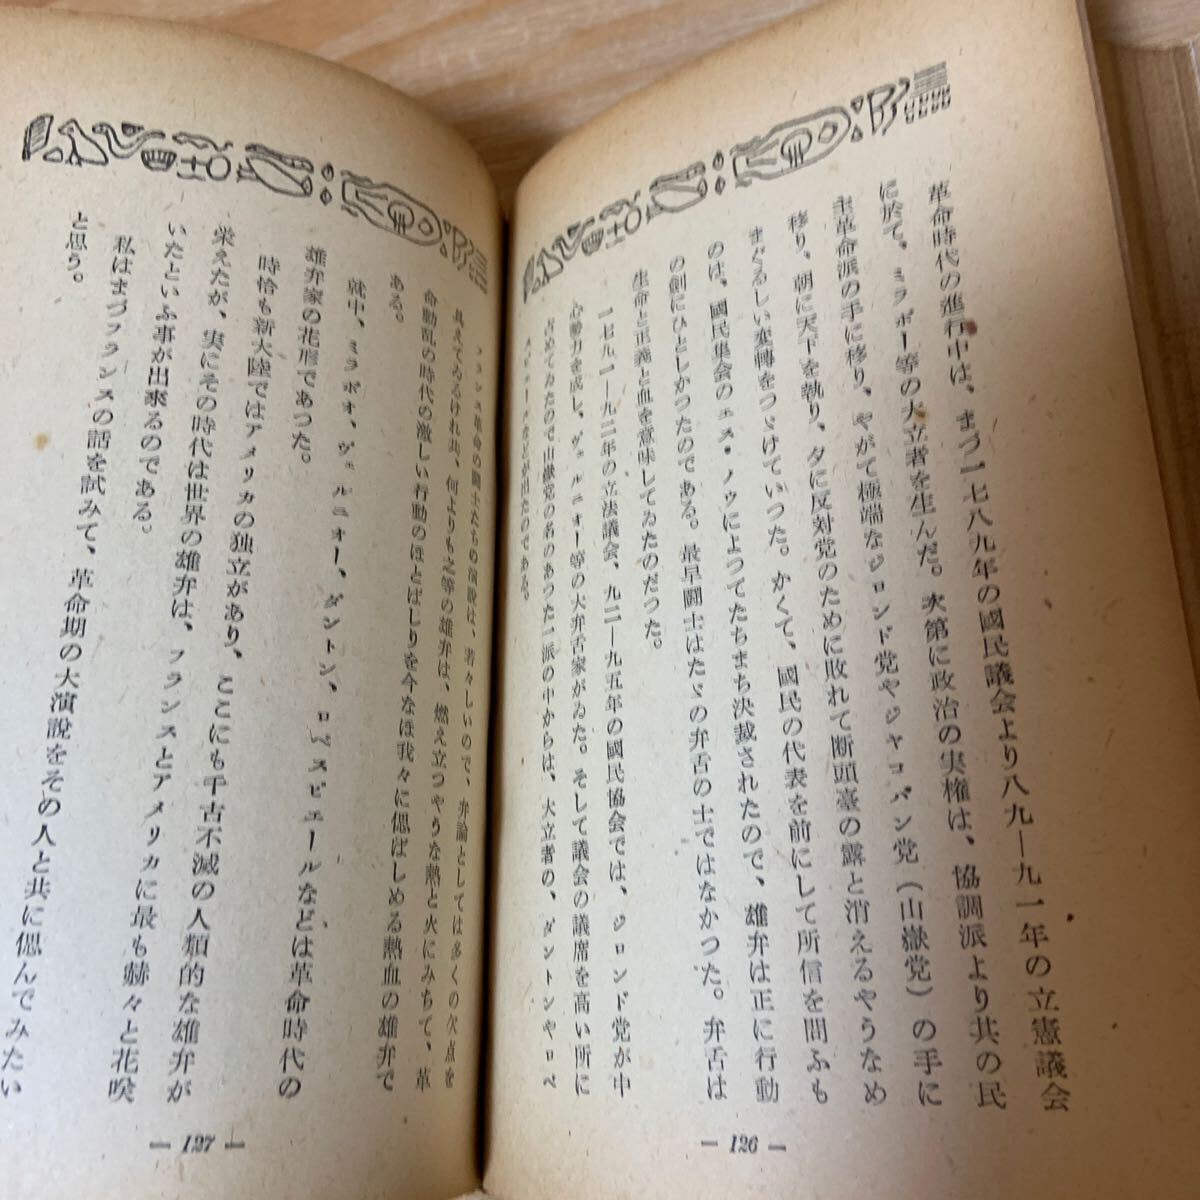 革命時代の進行中は、まづ一七八九年の國民議会より八九—九一年の立憲議会
に於て、ミラボー等の大立者を生んだ。次第に政治の実権は、協調派より共の民
主革命派の手に移り、やがて極端なジロンド党やジャコバン党(山嶽党)の手に
移り、朝に天下を執り、夕に反対党のために敗れて断頭臺の露と消えるやうなめ
まぐるしい変轉をつゞけていつた。かくて、國民の代表を前にして所信を問ふも
のは、國民集会のエス・ノウによつてたちまち決裁されたので、雄弁は正に行動
の劍にひとしかつたのである。最早闘士はたゞの弁舌の士ではなかつた。弁舌は
生命と正義と血を意味してゐたのだつた。
一七九一—九二年の立法議会、九二—九五年の國民協会では、ジロンド党が中
心勢力を成し、ヴェルニオー等の大弁舌家がゐた。そして議会の議席を高い所に
占めてゐたので山嶽党の名のあつた一派の中からは、大立者の、ダントンやロベ
スピエールなどが出たのである。
— 126 —
フランス革命の闘士たちの演説は、若々しいので、弁論としては多くの欠点を
具えてゐるけれ共、何よりも之等の雄弁は、燃え立つやうな熱と火にみちて、革
命動乱の時代の激しい行動のほとばしりを今なほ我々に偲ばしめる熱血の雄弁で
ある。
就中、ミラボオ、ヴェルニオー、ダントン、ロベスピエールなどは革命時代の
雄弁家の花形であつた。
時恰も新大陸ではアメリカの独立があり、ここにも千古不滅の人類的な雄弁が
栄えたが、実にその時代は世界の雄弁は、フランスとアメリカに最も赫々と花咲
いたといふ事が出来るのである。
私はまづフランスの話を試みて、革命期の大演説をその人と共に偲んでみたい
と思う。
— 127 —